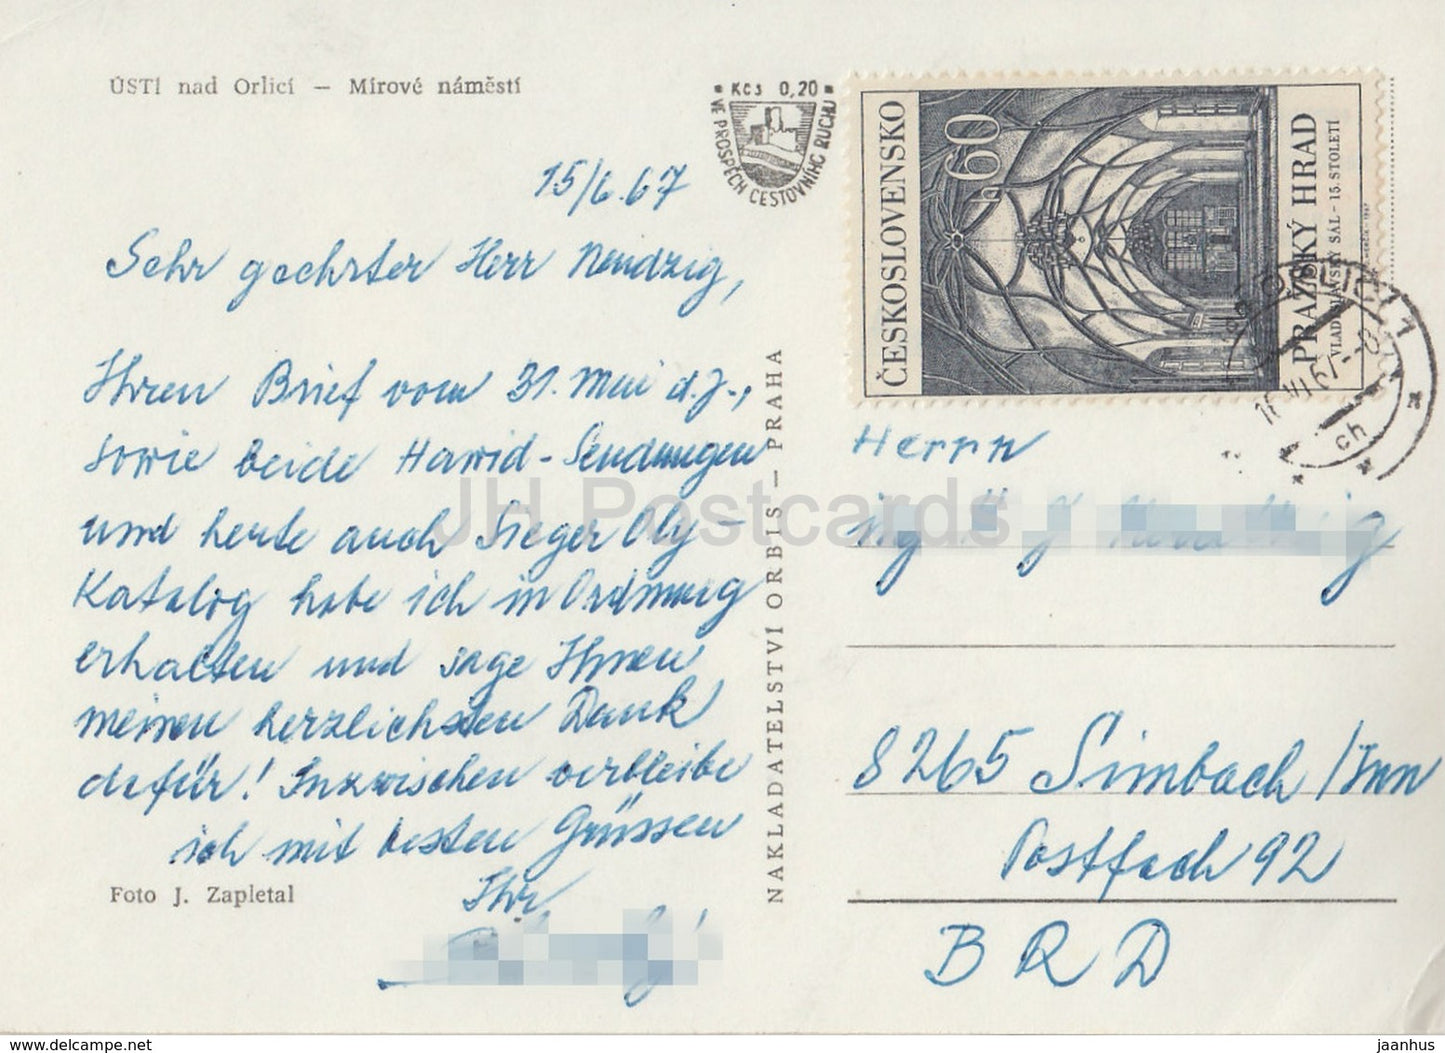 ÚSTÍ nad Orlicí – Mírové náměstí
Kčs 0,20
VE PROSPĚCH CESTOVNÍHO RUCHU
ČESKOSLOVENSKO
60 h
PRAŽSKÝ HRAD
VLADISLAVSKÝ SÁL - 15. STOLETÍ
ORLICÍ 1
16.VI.67-18
ch
15/6.67
Sehr geehrter Herr Neudzig,
Ihren Brief vom 31. Mai d.J.,
sowie beide Hawid-Sendungen
und heute auch Sieger Oly-
Katalog habe ich in Ordnung
erhalten und sage Ihnen
meinen herzlichsten Dank
dafür! Inzwischen verbleibe
ich mit besten Grüssen
Ihr
Foto J. Zapletal
NAKLADATELSTVÍ ORBIS – PRAHA
Herrn
8265 Simbach/Inn
Postfach 92
BRD
JH Postcards
www.delcampe.net
jaanhus